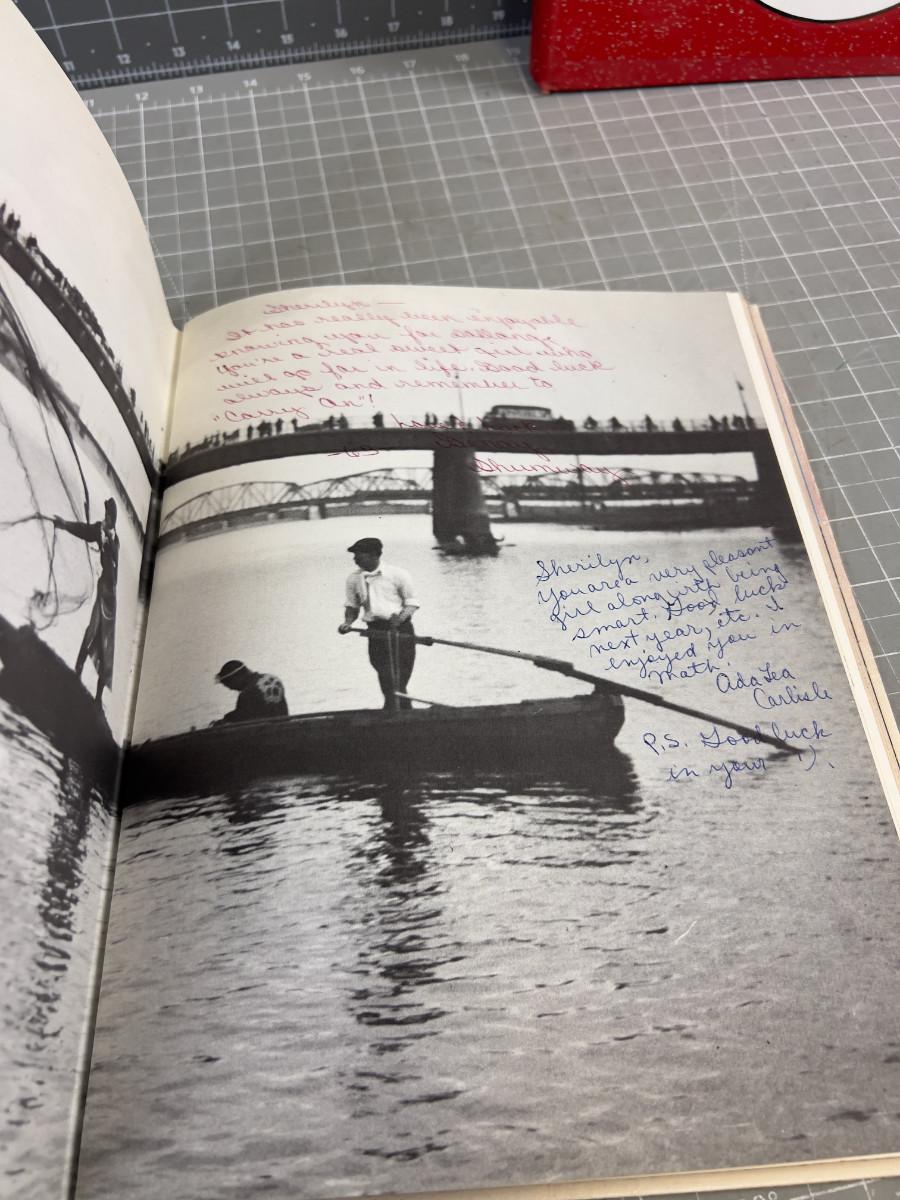 11 12 13 14 15 16 17 18 19
11 12 13 14 15 16 17 18
Sherilyn —
It has really been enjoyable
knowing you for so long.
You're a real sweet girl who
will go far in life. Good luck
always and remember to
"Carry On"!
-65-
Shumway
Sherilyn,
You are a very pleasant
girl along with being
smart. Good luck
next year, etc. I
enjoyed you in
math.
Ada Lea
Carlisle
P.S. Good luck
in your